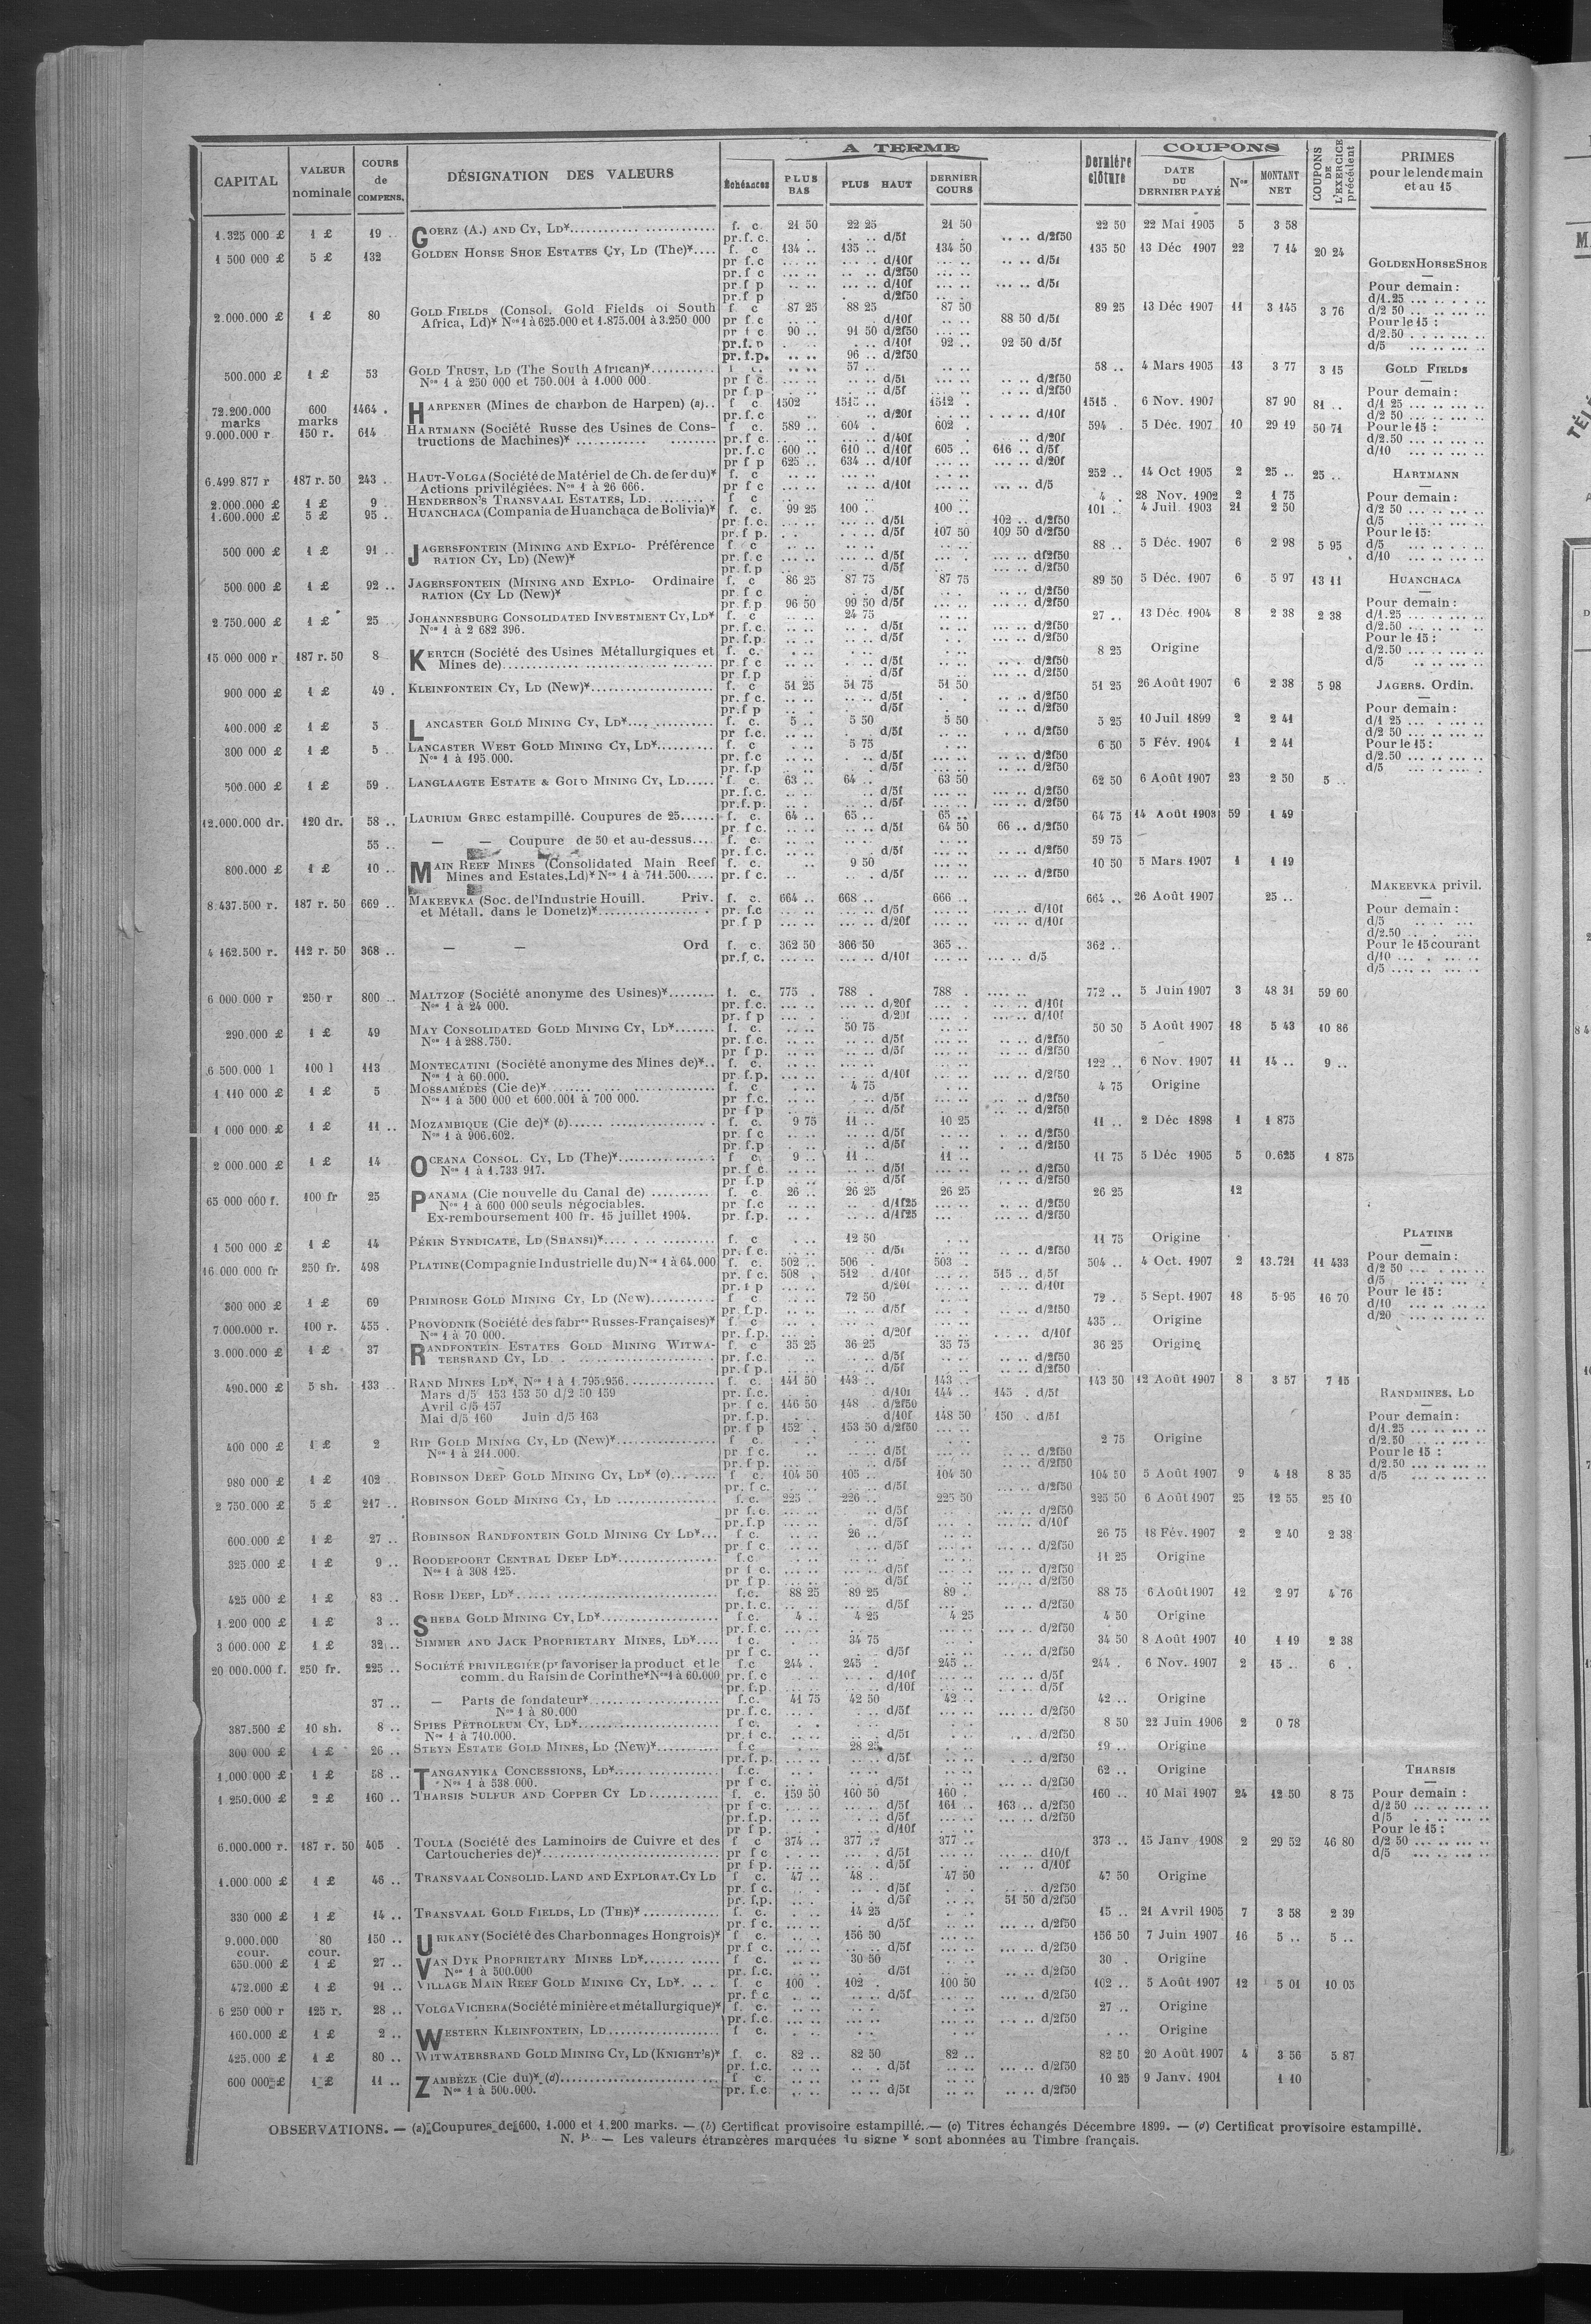 CAPITAL VALEUR nominale COURS de COMPENS. DÉSIGNATION DES VALEURS A TERME Échéances PLUS BAS PLUS HAUT DERNIER COURS Dernière clôture COUPONS DATE DU DERNIER PAYÉ Nos MONTANT NET COUPONS DE L'EXERCICE précédent PRIMES pour le lendemain et au 15
1.325 000 £ 1 £ 19 .. GOERZ (A.) AND CY, LD* f. c 21 50 22 25 21 50 22 50 22 Mai 1905 5 3 58
pr.f.c. d/5f d/2f50
1 500 000 £ 5 £ 132 GOLDEN HORSE SHOE ESTATES CY, LD (The)* f. c 134 .. 135 .. 134 50 135 50 13 Déc 1907 22 7 14 20 24
pr f.c d/10f d/5f GOLDEN HORSE SHOE
pr.f c d/2f50
pr f p d/10f d/5f Pour demain :
pr.f p d/2f50 d/1.25
2.000.000 £ 1 £ 80 GOLD FIELDS (Consol. Gold Fields of South f c 87 25 88 25 87 50 89 25 13 Déc 1907 11 3 145 3 76 d/2 50
Africa, Ld)* Nos 1 à 625.000 et 1.875.001 à 3.250 000 pr f c d/10f 88 50 d/5f Pour le 15 :
pr f c 90 .. 91 50 d/2f50 d/2.50
pr.f. p d/10f 92 .. 92 50 d/5f d/5
pr.f.p. 96 .. d/2f50
500.000 £ 1 £ 53 GOLD TRUST, LD (The South African)* f c. 57 .. 58 .. 4 Mars 1905 13 3 77 3 15 GOLD FIELDS
Nos 1 à 250 000 et 750.001 à 1.000 000. pr f c. d/5f d/2f50
pr f p d/5f d/2f50 Pour demain :
72.200.000 marks 600 marks 1464 . HARPENER (Mines de charbon de Harpen) (a).. f c 1502 1515 .. 1512 . 1515 . 6 Nov. 1907 87 90 81 .. d/1 25
pr. f. c d/20f d/10f d/2 50
9.000.000 r 150 r. 614 HARTMANN (Société Russe des Usines de Cons- f c. 589 .. 604 . 602 . 594 . 5 Déc. 1907 10 29 19 50 71 Pour le 15 :
tructions de Machines)* pr. f c. d/40f d/20f d/2.50
pr. f. c 600 .. 610 .. d/10f 605 .. 616 .. d/5f d/10
pr f p 625 .. 634 .. d/10f d/20f
6.499.877 r 187 r. 50 243 .. HAUT-VOLGA (Société de Matériel de Ch. de fer du)* f. c 252 .. 14 Oct 1905 2 25 .. 25 .. HARTMANN
Actions privilégiées. Nos 1 à 26 666. pr f c d/10f d/5
2.000.000 £ 1 £ 9 .. HENDERSON'S TRANSVAAL ESTATES, LD. f c 4 . 28 Nov. 1902 2 1 75 Pour demain :
1.600.000 £ 5 £ 95 .. HUANCHACA (Compania de Huanchaca de Bolivia)* f. c. 99 25 100 . 100 .. 101 .. 4 Juil. 1903 21 2 50 d/2 50
pr f. c. d/5f 102 .. d/2f50 d/5
pr. f p. d/5f 107 50 109 50 d/2f50 Pour le 15:
500 000 £ 1 £ 91 .. JAGERSFONTEIN (MINING AND EXPLO- Préférence f c 88 .. 5 Déc. 1907 6 2 98 5 95 d/5
RATION CY, LD) (New)* pr. f.c d/5f df2f50 d/10
pr. f.p d/5f d/2f50
500 000 £ 1 £ 92 .. JAGERSFONTEIN (MINING AND EXPLO- Ordinaire f. c 86 25 87 75 87 75 89 50 5 Déc. 1907 6 5 97 13 11 HUANCHACA
RATION (CY LD (New)* pr f c d/5f d/2f50
pr. f.p. 96 50 99 50 d/5f d/2f50 Pour demain :
2 750.000 £ 1 £ 25 JOHANNESBURG CONSOLIDATED INVESTMENT CY, LD* f. c 24 75 27 .. 13 Déc. 1904 8 2 38 2 38 d/1.25
Nos 1 à 2 682 396. pr. f. c. d/5f d/2f50 d/2.50
pr. f.p. d/5f d/2f50 Pour le 15 :
15 000 000 r 187 r. 50 8 KERTCH (Société des Usines Métallurgiques et f. c. 8 25 Origine d/2.50
Mines de) pr f c d/5f d/2f50 d/5
pr. f.p d/5f d/2f50
900 000 £ 1 £ 49 . KLEINFONTEIN CY, LD (New)* f. c 51 25 51 75 51 50 51 25 26 Août 1907 6 2 38 5 98 JAGERS. Ordin.
pr. f c. d/5f d/2f50
pr.f p d/5f d/2f50 Pour demain :
400.000 £ 1 £ 5 LANCASTER GOLD MINING CY, LD* f. c. 5 .. 5 50 5 50 5 25 10 Juil 1899 2 2 41 d/1 25
pr f.c. d/5f d/2f50 d/2 50
300 000 £ 1 £ 5 . LANCASTER WEST GOLD MINING CY, LD* f. c 5 75 6 50 5 Fév. 1904 1 2 41 Pour le 15 :
Nos 1 à 195.000. pr. f.c d/5f d/2f50 d/2.50
pr. f.p d/5f d/2f50 d/5
500.000 £ 1 £ 59 . LANGLAAGTE ESTATE & GOLD MINING CY, LD f c. 63 .. 64 .. 63 50 62 50 6 Août 1907 23 2 50 5 ..
pr.f.c. d/5f d/2f50
pr.f.p. d/5f d/2f50
12.000.000 dr. 120 dr. 58 .. LAURIUM GREC estampillé. Coupures de 25 f. c. 64 .. 65 .. 65 .. 64 75 14 Août 1903 59 1 49
pr. f c. d/5f 64 50 66 .. d/2f50
55 .. — — Coupure de 50 et au-dessus f c. 59 75
pr. f.c. d/5f d/2f50
800.000 £ 1 £ 10 .. MAIN REEF MINES (Consolidated Main Reef f. c. 9 50 10 50 5 Mars 1907 1 1 19
Mines and Estates, Ld)* Nos 1 à 711.500 pr. f c. d/5f d/2f50
MAKEEVKA privil.
8.437.500 r. 187 r. 50 669 .. MAKEEVKA (Soc. de l'Industrie Houill. Priv. f. c. 664 .. 668 .. 666 .. 664 .. 26 Août 1907 25 ..
et Métall. dans le Donetz)* pr. f.c d/5f d/10f Pour demain :
pr f p d/20f d/10f d/5
d/2.50
4 162.500 r. 112 r. 50 368 .. — — Ord f. c. 362 50 366 50 365 .. 362 .. Pour le 15 courant
pr.f. c. d/10f d/5 d/10
d/5
6 000 000 r 250 r 800 .. MALTZOF (Société anonyme des Usines)* f. c. 775 . 788 . 788 . 772 .. 5 Juin 1907 3 48 31 59 60
Nos 1 à 24 000. pr. f.c. d/20f d/10f
pr. f p d/20f d/10f
290.000 £ 1 £ 49 MAY CONSOLIDATED GOLD MINING CY, LD* f. c. 50 75 50 50 5 Août 1907 18 5 43 10 86
Nos 1 à 288.750. pr. f. c. d/5f d/2f50
pr f p. d/5f d/2f50
6 500.000 l 100 l 113 MONTECATINI (Société anonyme des Mines de)* f. c. 122 .. 6 Nov. 1907 11 14 .. 9 ..
Nos 1 à 60.000. pr. f.p. d/10f d/2f50
1 110 000 £ 1 £ 5 MOSSAMÉDÈS (Cie de)* f. c 4 75 4 75 Origine
Nos 1 à 500 000 et 600.001 à 700 000. pr f.c. d/5f d/2f50
pr f p d/5f d/2f50
1 000 000 £ 1 £ 11 .. MOZAMBIQUE (Cie de)* (b) f. c. 9 75 11 .. 10 25 11 .. 2 Déc 1898 1 1 875
Nos 1 à 906.602. pr. f c d/5f d/2f50
pr. f.p d/5f d/2f50
2 000.000 £ 1 £ 14 OCEANA CONSOL. CY, LD (The)* f c. 9 .. 11 .. 11 .. 11 75 5 Déc 1905 5 0.625 1 875
Nos 1 à 1.733 917. pr. f c. d/5f d/2f50
pr. f.p d/5f d/2f50
65 000 000 f. 100 fr 25 PANAMA (Cie nouvelle du Canal de) f. c 26 .. 26 25 26 25 26 25 12
Nos 1 à 600 000 seuls négociables. pr f.c d/1f25 d/2f50
Ex-remboursement 100 fr. 15 juillet 1904. pr. f.p. d/1f25 d/2f50
1 500 000 £ 1 £ 14 PÉKIN SYNDICATE, LD (SHANSI)* f. c 12 50 11 75 Origine PLATINE
pr. f c. d/5f d/2f50
16 000 000 fr 250 fr. 498 PLATINE (Compagnie Industrielle du) Nos 1 à 64.000 f. c. 502 .. 506 . 503 . 504 .. 4 Oct. 1907 2 13.721 11 433 Pour demain :
pr. f c. 508 . 512 . d/10f 515 .. d/5f d/2 50
pr. f p d/20f d/10f d/5
300 000 £ 1 £ 69 PRIMROSE GOLD MINING CY, LD (New) f. c 72 50 72 .. 5 Sept. 1907 18 5 95 16 70 Pour le 15 :
pr. f.p. d/5f d/2f50 d/10
7 000.000 r. 100 r. 455 . PROVODNIK (Société des fabres Russes-Françaises)* f c 435 .. Origine d/20
Nos 1 à 70 000. pr. f.p. d/20f d/10f
3.000.000 £ 1 £ 37 RANDFONTEIN ESTATES GOLD MINING WITWA- f. c 35 25 36 25 35 75 36 25 Origine
TERSRAND CY, LD pr. f.c. d/5f d/2f50
pr. f p. d/5f d/2f50
490.000 £ 5 sh. 133 .. RAND MINES LD*, Nos 1 à 1.795.956 f. c. 141 50 143 .. 143 .. 143 50 12 Août 1907 8 3 57 7 15
Mars d/5 153 153 50 d/2 50 159 pr. f.c. d/10f 144 .. 145 . d/5f RANDMINES, LD
Avril d/5 157 pr. f c 146 50 148 . d/2f50
Mai d/5 160 Juin d/5 163 pr. f.p. d/10f 148 50 150 . d/5f Pour demain :
pr. f p 152 . 153 50 d/2f50 d/1.25
400 000 £ 1 £ 2 RIP GOLD MINING CY, LD (New)* f c. 2 75 Origine d/2.50
Nos 1 à 211.000. pr. f c. d/5f d/2f50 Pour le 15 :
pr. f p. d/5f d/2f50 d/2.50
980 000 £ 1 £ 102 .. ROBINSON DEEP GOLD MINING CY, LD* (c) f c. 104 50 105 .. 104 50 104 50 5 Août 1907 9 4 18 8 35 d/5
pr. f c. d/5f d/2f50
2 750.000 £ 5 £ 217 .. ROBINSON GOLD MINING CY, LD f. c. 225 . 226 .. 225 50 225 50 6 Août 1907 25 12 55 25 10
pr f. c. d/5f d/2f50
pr. f.p d/5f d/10f
600.000 £ 1 £ 27 .. ROBINSON RANDFONTEIN GOLD MINING CY LD* f c. 26 .. 26 75 18 Fév. 1907 2 2 40 2 38
pr. f c. d/5f d/2f50
325 000 £ 1 £ 9 .. ROODEPOORT CENTRAL DEEP LD* f.c 11 25 Origine
Nos 1 à 308 125. pr f c. d/5f d/2f50
pr f p. d/5f d/2f50
425 000 £ 1 £ 83 .. ROSE DEEP, LD* f.c. 88 25 89 25 89 . 88 75 6 Août 1907 12 2 97 4 76
pr. f. c. d/5f d/2f50
1.200 000 £ 1 £ 3 .. SHEBA GOLD MINING CY, LD* f c. 4 .. 4 25 4 25 4 50 Origine
pr. f. c. d/2f50
3 000.000 £ 1 £ 32 .. SIMMER AND JACK PROPRIETARY MINES, LD* f c. 34 75 34 50 8 Août 1907 10 1 19 2 38
pr f c. d/5f d/2f50
20 000.000 f. 250 fr. 225 .. SOCIÉTÉ PRIVILEGIÉE (pr favoriser la product et le f.c 244 . 245 . 245 .. 244 . 6 Nov. 1907 2 15 .. 6 .
comm. du Raisin de Corinthe* Nos 1 à 60.000 pr. f. c d/10f d/5f
pr. f.p. d/10f d/5f
37 .. — Parts de fondateur* f. c. 41 75 42 50 42 .. 42 .. Origine
Nos 1 à 80.000 pr. f.c. d/5f d/2f50
387.500 £ 10 sh. 8 .. SPIES PÉTROLEUM CY, LD* f c. 8 50 22 Juin 1906 2 0 78
Nos 1 à 710.000. pr. f c. d/5f d/2f50
300 000 £ 1 £ 26 .. STEYN ESTATE GOLD MINES, LD (New)* f c 28 25 29 .. Origine
pr. f. p. d/5f d/2f50
1,000 000 £ 1 £ 58 .. TANGANYIKA CONCESSIONS, LD* f.c. 62 .. Origine THARSIS
Nos 1 à 538 000. pr f c. d/5f d/2f50
1 250.000 £ 2 £ 160 .. THARSIS SULFUR AND COPPER CY LD f. c. 159 50 160 50 160 . 160 .. 10 Mai 1907 24 12 50 8 75 Pour demain :
pr f c. d/5f 161 .. 163 .. d/2f50 d/2 50
pr. f.p. d/5f d/2f50 d/5
pr f p. d/10f Pour le 15 :
6.000.000 r. 187 r. 50 405 . TOULA (Société des Laminoirs de Cuivre et des f c 374 .. 377 .. 377 .. 373 .. 15 Janv 1908 2 29 52 46 80 d/2 50
Cartoucheries de)* pr f c. d/5f d10/f d/5
pr f p. d/5f d/10f
1.000 000 £ 1 £ 46 .. TRANSVAAL CONSOLID. LAND AND EXPLORAT. CY LD f c. 47 .. 48 . 47 50 47 50 Origine
pr. f c. d/5f d/2f50
pr. f.p. d/5f 51 50 d/2f50
330 000 £ 1 £ 14 .. TRANSVAAL GOLD FIELDS, LD (THE)* f. c. 14 25 15 .. 21 Avril 1905 7 3 58 2 39
pr. f c. d/5f d/2f50
9.000.000 cour. 80 cour. 150 .. URIKANY (Société des Charbonnages Hongrois)* f c. 156 50 156 50 7 Juin 1907 16 5 .. 5 ..
pr.f c. d/5f d/2f50
650.000 £ 1 £ 27 .. VAN DYK PROPRIETARY MINES LD* f c. 30 50 30 . Origine
Nos 1 à 500.000 pr. f.c. d/5f d/2f50
472.000 £ 1 £ 91 .. VILLAGE MAIN REEF GOLD MINING CY, LD* f c 100 . 102 . 100 50 102 .. 5 Août 1907 12 5 01 10 05
pr. f c d/5f d/2f50
6 250 000 r 125 r. 28 .. VOLGA VICHERA (Société minière et métallurgique)* f. c. 27 .. Origine
pr. f.c. d/2f50
160.000 £ 1 £ 2 .. WESTERN KLEINFONTEIN, LD f c. Origine
425.000 £ 1 £ 80 .. WITWATERSRAND GOLD MINING CY, LD (KNIGHT'S)* f. c. 82 .. 82 50 82 .. 82 50 20 Août 1907 4 3 56 5 87
pr. f.c. d/5f d/2f50
600 000 £ 1 £ 11 .. ZAMBÈZE (Cie du)* (d) f c. 10 25 9 Janv. 1901 1 10
Nos 1 à 500.000. pr. f.c. d/5f d/2f50
OBSERVATIONS. — (a) Coupures de 600, 1.000 et 1.200 marks. — (b) Certificat provisoire estampillé. — (c) Titres échangés Décembre 1899. — (d) Certificat provisoire estampillé.
N. B. — Les valeurs étrangères marquées du signe * sont abonnées au Timbre français.